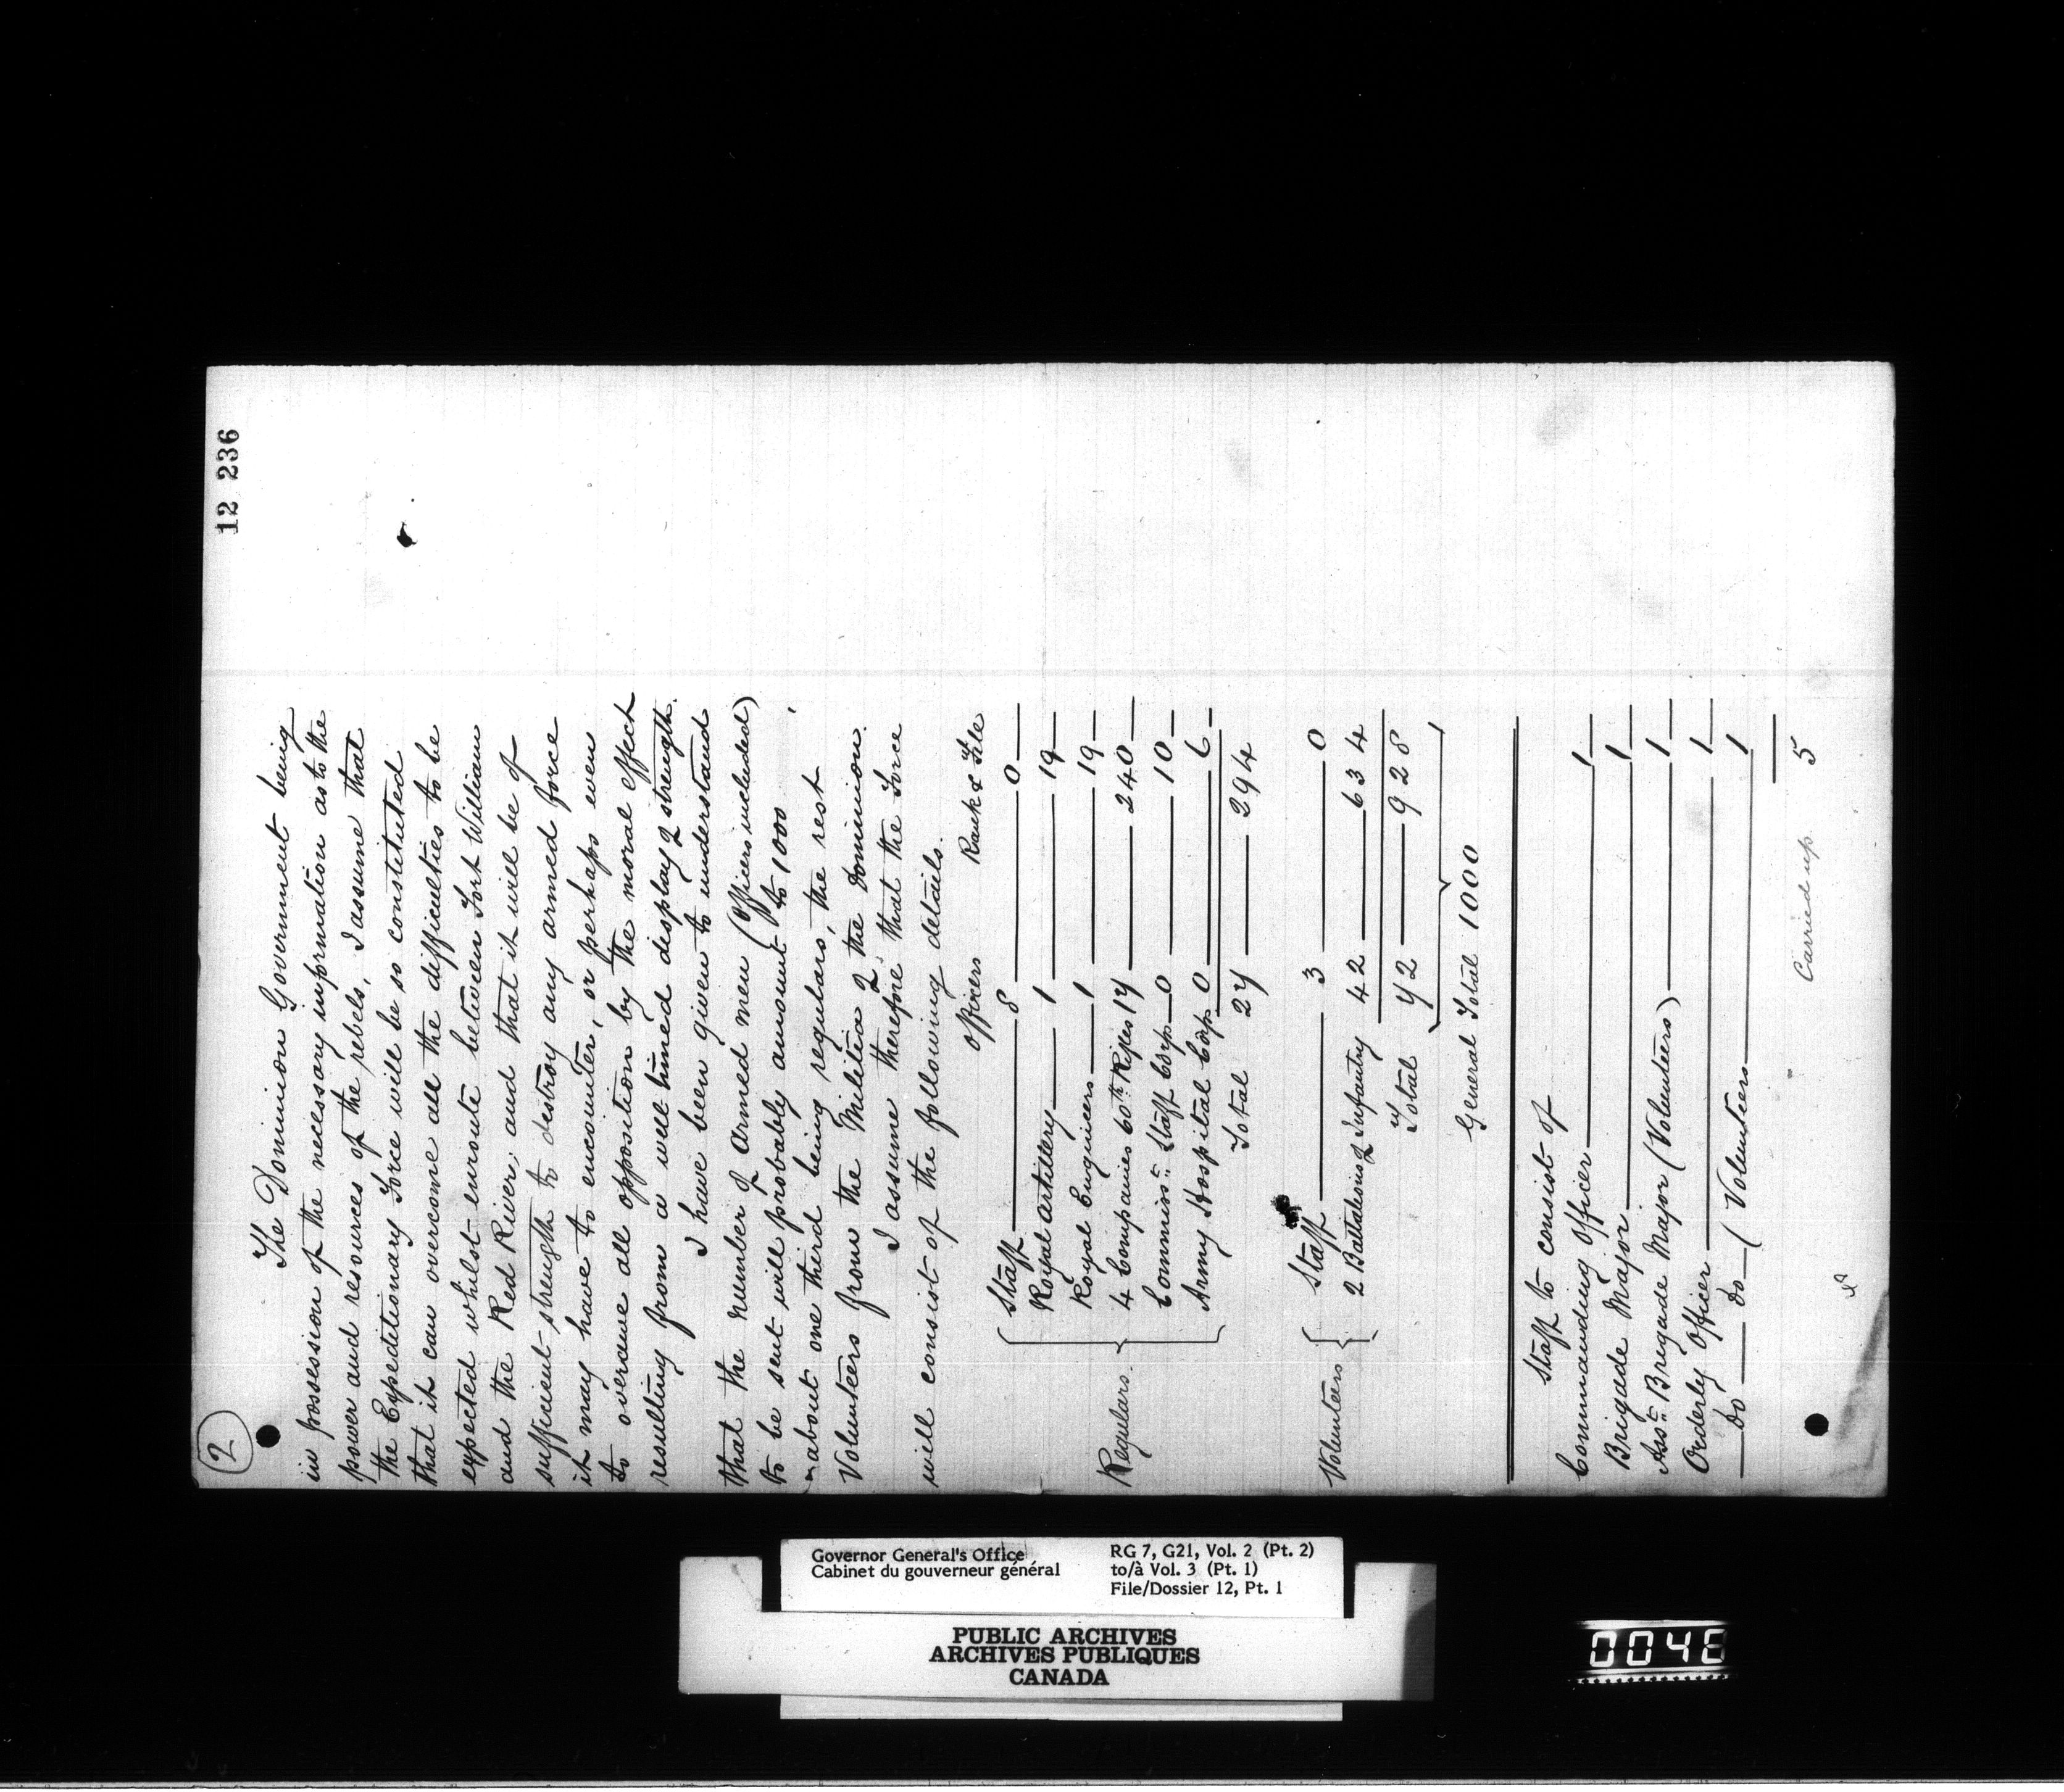 12 236
(2)
The Dominion Government being
in possession of the necessary information as to the
power and resources of the rebels, I assume that
the Expeditionary Force will be so constituted
that it can overcome all the difficulties to be
expected whilst enroute between Fort William
and the Red River, and that it will be of
sufficient strength to destroy any armed force
it may have to encounter, or perhaps even
to overawe all opposition by the moral effect
resulting from a well timed display of strength.
I have been given to understand
that the number of armed men (Officers included)
to be sent will probably amount to 1000
about one third being regulars, the rest
Volunteers from the Militia of the Dominion.
I assume therefore that the Force
will consist of the following details.
Officers Rank & File
Regulars
Staff 8 0
Royal Artillery 1 19
Royal Engineers 1 19
4 Companies 60th Rifles 17 240
Commisst Staff Corps 0 10
Army Hospital Corps 0 6
Total 27 294
Volunteers
Staff 3 0
2 Battalions of Infantry 42 634
Total 72 928
General Total 1000
Staff to consist of
Commanding Officer 1
Brigade Major 1
Asst Brigade Major (Volunteers) 1
Orderly Officer 1
do do (Volunteers 1
Carried up 5
Governor General's Office
Cabinet du gouverneur général
RG 7, G21, Vol. 2 (Pt. 2)
to/à Vol. 3 (Pt. 1)
File/Dossier 12, Pt. 1
PUBLIC ARCHIVES
ARCHIVES PUBLIQUES
CANADA